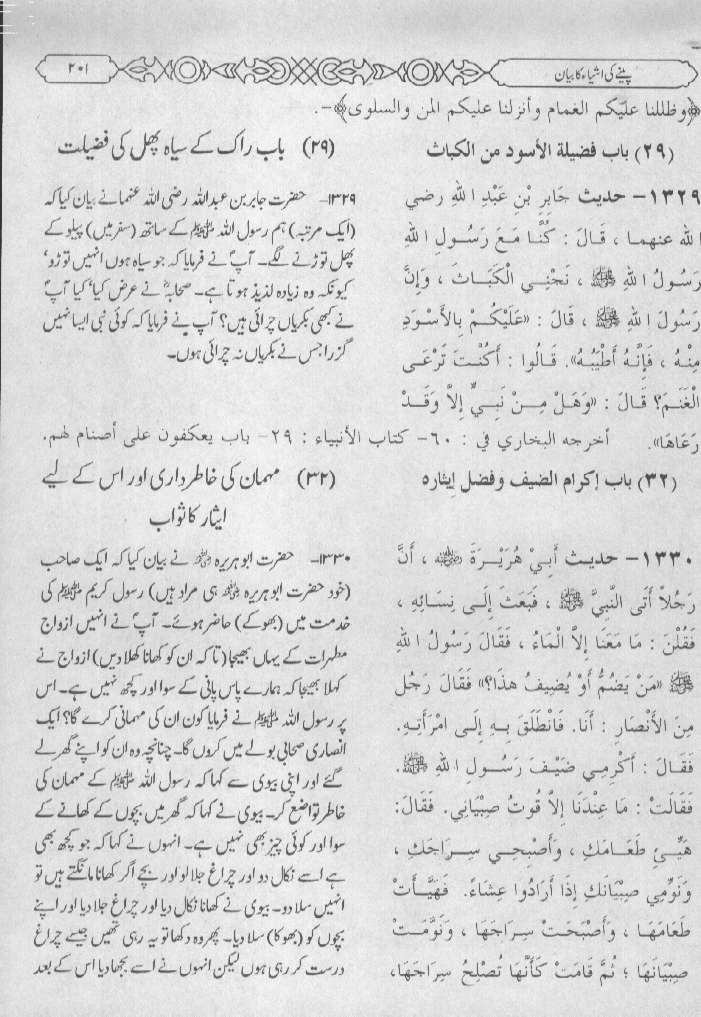 پینے کی اشیاء کا بیان
۲۰۱
﴿وظللنا عليكم الغمام وأنزلنا عليكم المن والسلوى﴾-.
(۲۹) باب فضيلة الأسود من الكباث
۱۳۲۹– حديث جَابِرِ بْنِ عَبْدِ اللهِ رضي
الله عنهما ، قَالَ : كُنَّا مَعَ رَسُولِ اللهِ
رَسُولُ اللهِ ﷺ ، نَجْنِي الْكَبَاثَ ، وَإِنَّ
رَسُولَ اللهِ ﷺ ، قَالَ : «عَلَيْكُمْ بِالأَسْوَدِ
مِنْهُ ، فَإِنَّهُ أَطْيَبُهُ». قَالُوا : أَكُنْتَ تَرْعَى
الْغَنَمَ؟ قَالَ : «وَهَلْ مِنْ نَبِيٍّ إِلاَّ وَقَدْ
رَعَاهَا».
(۲۹) باب راک کے سیاہ پھل کی فضیلت
۱۳۲۹– حضرت جابر بن عبداللہ رضی اللہ عنہما نے بیان کیا کہ
(ایک مرتبہ) ہم رسول اللہ ﷺ کے ساتھ (سفر میں) پیلو کے
پھل توڑنے لگے۔ آپؐ نے فرمایا کہ جو سیاہ ہوں انہیں توڑو'
کیونکہ وہ زیادہ لذیذ ہوتا ہے۔ صحابہؓ نے عرض کیا' کیا آپؐ
نے کبھی بکریاں چرائی ہیں؟ آپ نے فرمایا کہ کوئی نبی ایسا نہیں
گزرا جس نے بکریاں نہ چرائی ہوں۔
أخرجه البخاري في : ٦٠– كتاب الأنبياء : ۲۹– باب يعكفون على أصنام لهم.
(۳۲) باب إكرام الضيف وفضل إيثاره
۱۳۳۰– حديث أَبِيْ هُرَيْرَةَ ؓ ، أَنَّ
رَجُلاً أَتَى النَّبِيَّ ﷺ ، فَبَعَثَ إِلَى نِسَائِهِ ،
فَقُلْنَ : مَا مَعَنَا إِلاَّ الْمَاءُ ، فَقَالَ رَسُولُ اللهِ
ﷺ «مَنْ يَضُمُّ أَوْ يُضِيفُ هذَا؟» فَقَالَ رَجُل
مِنَ الأَنْصَارِ : أَنَا. فَانْطَلَقَ بِهِ إِلَى امْرَأَتِهِ.
فَقَالَ : أَكْرِمِي ضَيْفَ رَسُولِ اللهِ ﷺ.
فَقَالَتْ : مَا عِنْدَنَا إِلاَّ قُوتُ صِبْيَانِي. فَقَالَ:
هَيِّئِي طَعَامَكِ ، وَأَصْبِحي سِرَاجَكِ ،
وَنَوِّمِي صِبْيَانَكِ إِذَا أَرَادُوا عِشَاءً. فَهَيَّأَتْ
طَعَامَهَا ، وَأَصْبَحَتْ سِرَاجَهَا ، وَنَوَّمَتْ
صِبْيَانَهَا ؛ ثُمَّ قَامَتْ كَأَنَّهَا تُصْلِحُ سِرَاجَهَا،
(۳۲) مہمان کی خاطر داری اور اس کے لیے
ایثار کا ثواب
۱۳۳۰– حضرت ابوہریرہ ؓ نے بیان کیا کہ ایک صاحب
(خود حضرت ابوہریرہ ؓ ہی مراد ہیں) رسول کریم ﷺ کی
خدمت میں (بھوکے) حاضر ہوئے۔ آپؐ نے انہیں ازواج
مطہرات کے یہاں بھیجا (تا کہ ان کو کھانا کھلا دیں) ازواج نے
کہلا بھیجا کہ ہمارے پاس پانی کے سوا اور کچھ نہیں ہے۔ اس
پر رسول اللہ ﷺ نے فرمایا کون ان کی مہمانی کرے گا؟ ایک
انصاری صحابی بولے میں کروں گا۔ چنانچہ وہ ان کو اپنے گھر لے
گئے اور اپنی بیوی سے کہا کہ رسول اللہ ﷺ کے مہمان کی
خاطر تواضع کر۔ بیوی نے کہا کہ گھر میں بچوں کے کھانے کے
سوا اور کوئی چیز بھی نہیں ہے۔ انہوں نے کہا کہ جو کچھ بھی
ہے اسے نکال دو اور چراغ جلا لو اور بچے اگر کھانا مانگتے ہیں تو
انہیں سلا دو۔ بیوی نے کھانا نکال دیا اور چراغ جلا دیا اور اپنے
بچوں کو (بھوکا) سلا دیا۔ پھر وہ دکھا تو یہ رہی تھیں جیسے چراغ
درست کر رہی ہوں لیکن انہوں نے اسے بجھا دیا اس کے بعد